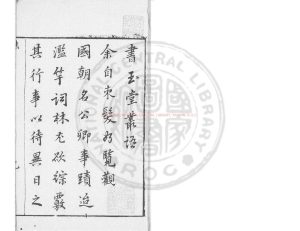 書玉堂叢語
余自束髮好覽觀
國朝名公卿事蹟迨
濫竽詞林尤欲綜覈
其行事以待異日之
CENTRAL LIBRARY